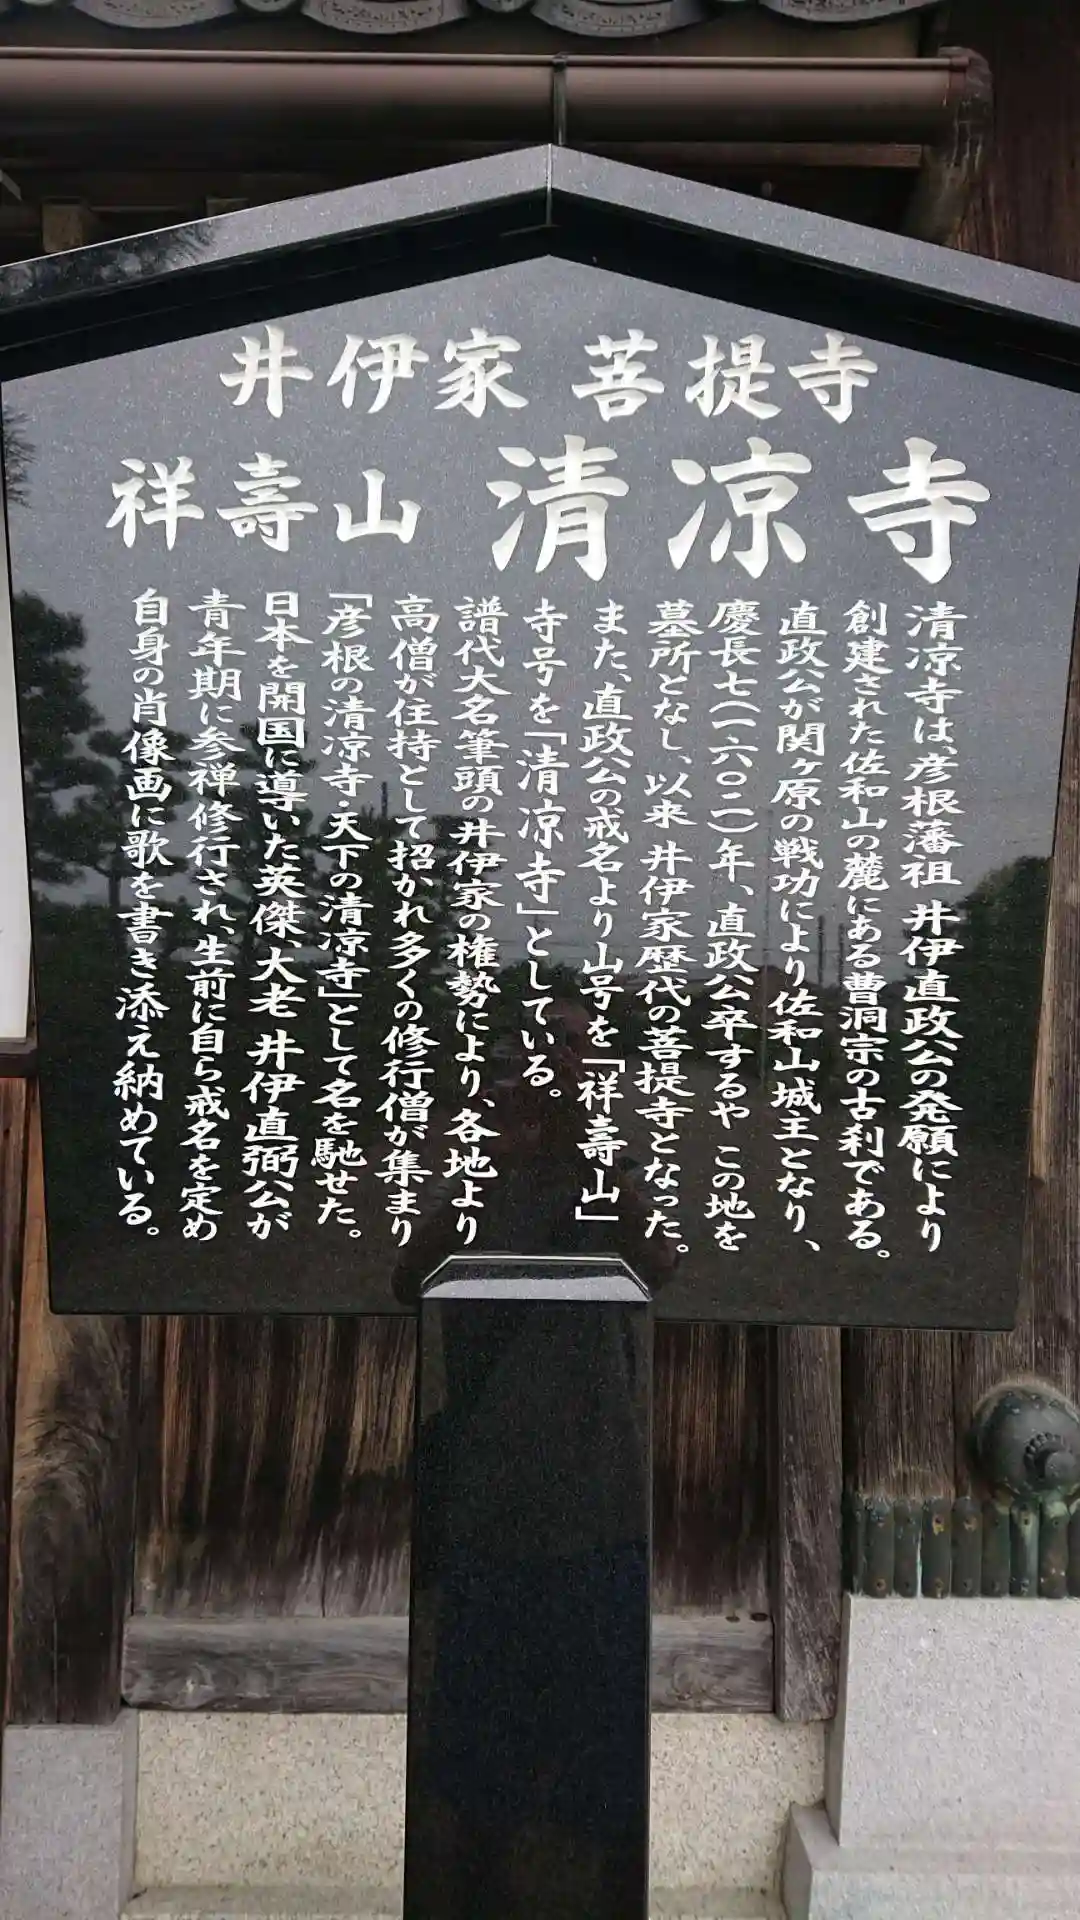 井伊家 菩提寺
祥壽山 清凉寺
清凉寺は、彦根藩祖 井伊直政公の発願により
創建された佐和山の麓にある曹洞宗の古刹である。
直政公が関ヶ原の戦功により佐和山城主となり、
慶長七(一六〇二)年、直政公卒するや この地を
墓所となし、以来 井伊家歴代の菩提寺となった。
また、直政公の戒名より山号を「祥壽山」
寺号を「清凉寺」としている。
譜代大名筆頭の井伊家の権勢により、各地より
高僧が住持として招かれ多くの修行僧が集まり
「彦根の清凉寺・天下の清凉寺」として名を馳せた。
日本を開国に導いた英傑、大老 井伊直弼公が
青年期に参禅修行され、生前に自ら戒名を定め
自身の肖像画に歌を書き添え納めている。